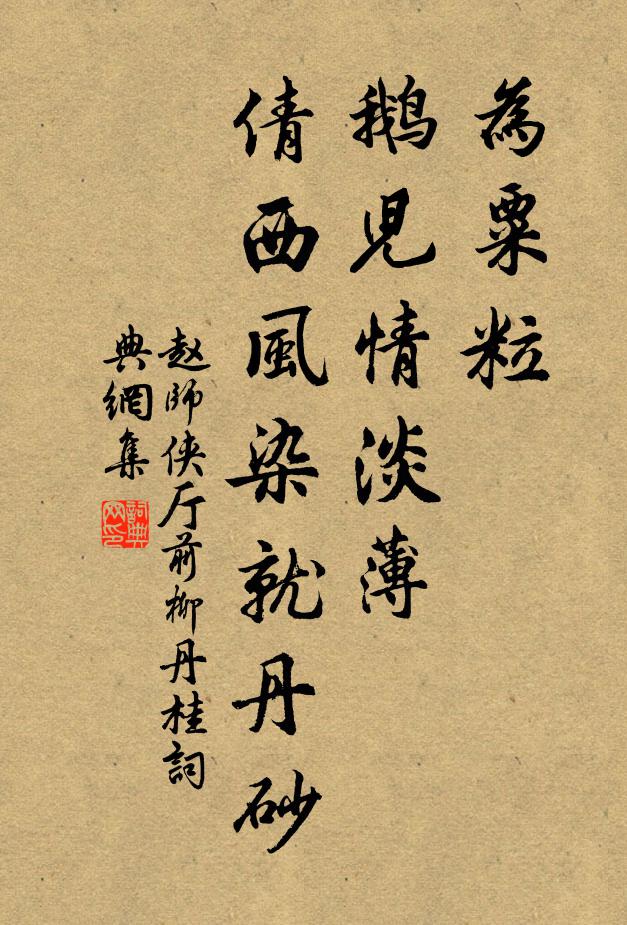 為粟粒
鵝児情淡薄
倩西風染就丹砂
赵師侠厅前柳丹桂詞
典網集
詞典網印